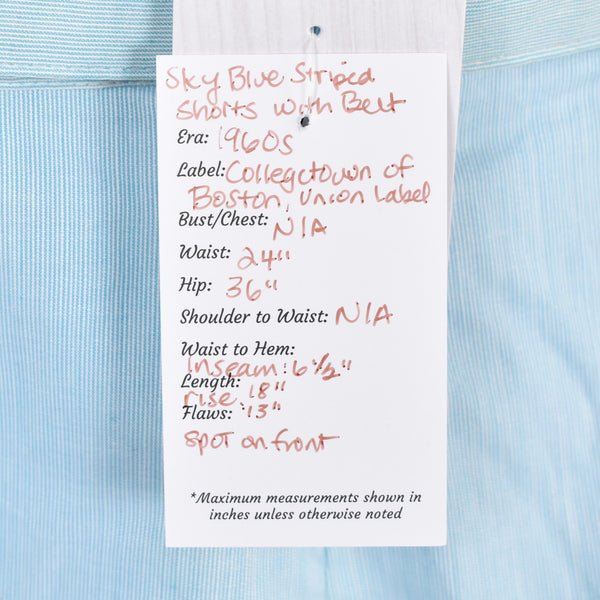 Sky Blue Striped
Shorts with Belt
Era: 1960s
Label: Collegetown of
Boston, Union Label
Bust/Chest: N/A
Waist: 24"
Hip: 36"
Shoulder to Waist: N/A
Waist to Hem:
Inseam: 6 1/2"
Length: 18"
rise: 13"
Flaws:
spot on front
*Maximum measurements shown in
inches unless otherwise noted